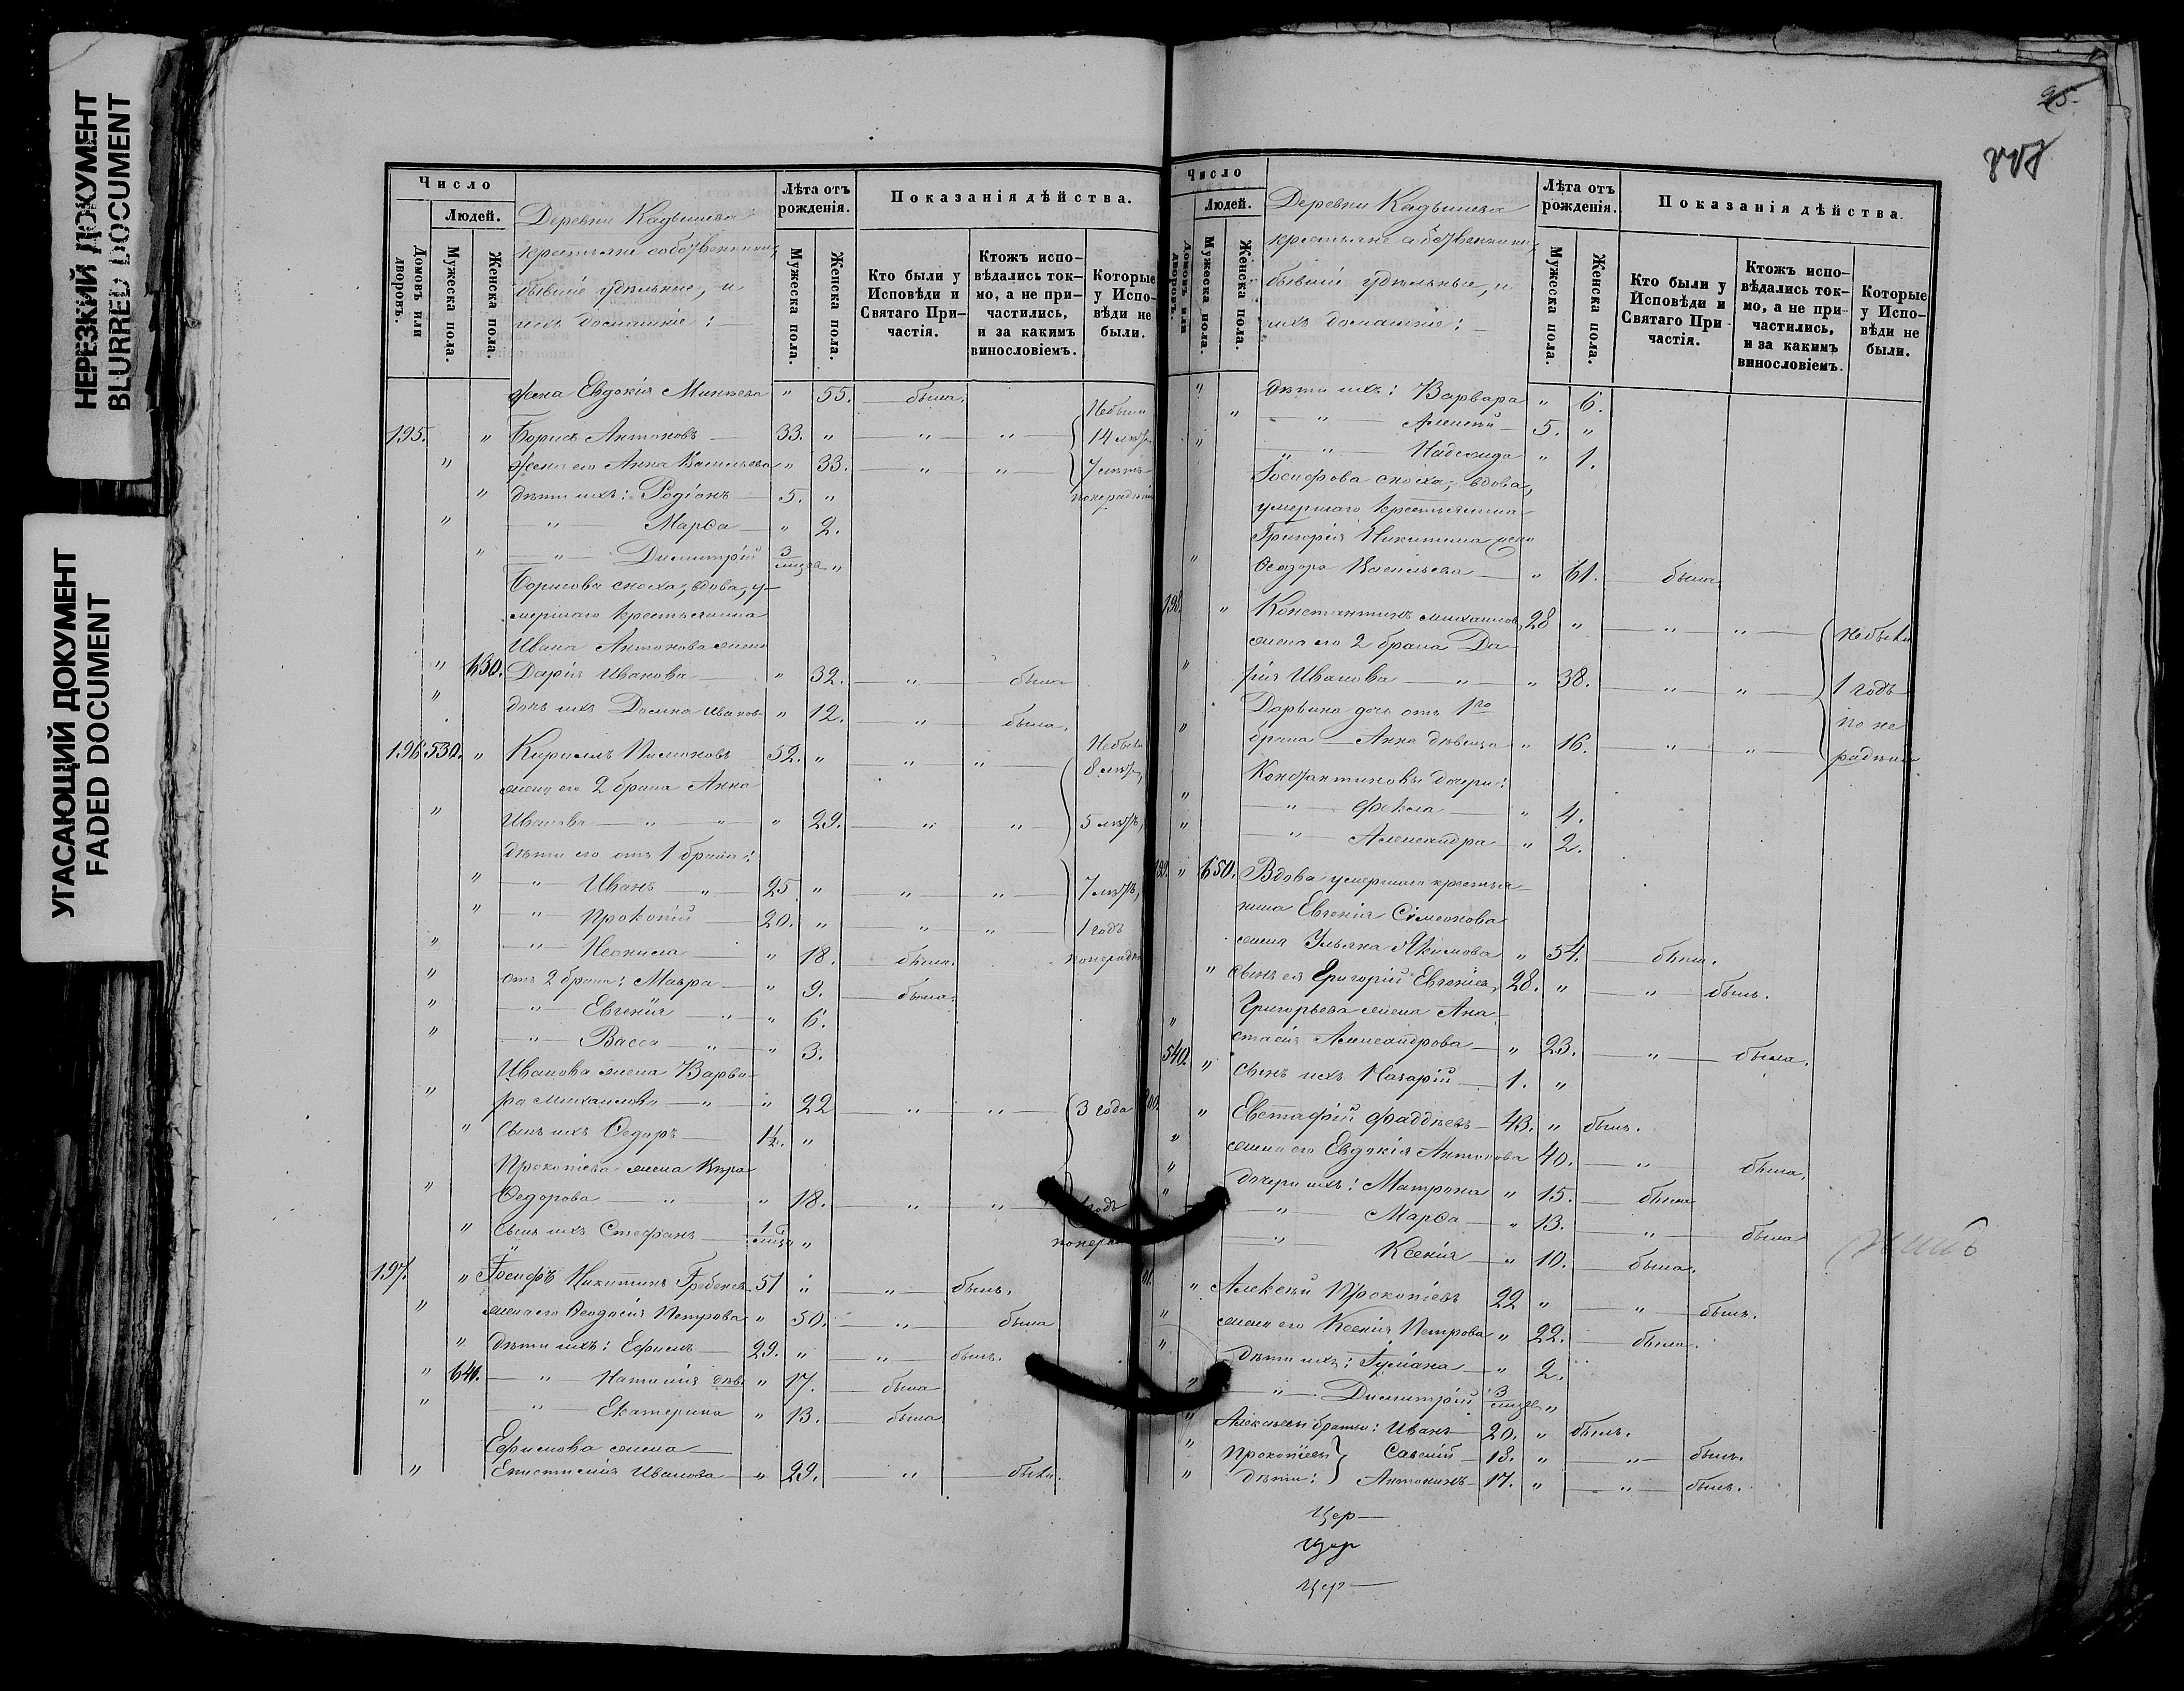 НЕРЕЗКИЙ ДОКУМЕНТ
BLURRED DOCUMENT
УГАСАЮЩИЙ ДОКУМЕНТ
FADED DOCUMENT
Число
Людей.
Домовъ или дворовъ.
Мужеска пола.
Женска пола.
Деревни Кадышева
крестьяне собственники,
бывшіе удѣльные, и
ихъ домашніе:
Лѣта отъ рожденія.
Мужеска пола.
Женска пола.
Показанія дѣйства.
Кто были у Исповѣди и Святаго При-частія.
Ктожъ испо-вѣдались ток-мо, а не при-частились, и за какимъ винословіемъ.
Которые у Испо-вѣди не были.
жена Евдокія Минѣева " 55. — была.
195. " Борисъ Антоновъ — 33. " — " — " — Небыли 14 лѣтъ
" жена его Анна Васильева " 33. — " — " — 7 лѣтъ
" дѣти ихъ: Родіонъ — 5. " понерадѣнію
" — " — Марѳа — " 2.
" — " — Димитрій 3 мѣсяца "
Борисова сноха, вдова, у-
мершаго крестьянина
Ивана Антонова жена
" 630. Дарія Иванова — " 32. — " — была
" дочь ихъ Домна Иванов. " 12. — " — была.
196 530. " Кириллъ Пимоновъ 52. " — " — " — Небыли 8 лѣтъ,
жена его 2 брака Анна
" Ивановa — " — " — " 29. — " — " — 5 лѣтъ,
дѣти его отъ 1 брака:
" — " — Иванъ — " — 25 " — " — " — 7 лѣтъ,
" — " — Прокопій — 20. " — " — " — 1 годъ
" — " — Неонила — " 18. — была. понерадѣн
" отъ 2 брака: Мавра — " 9. — была.
" — " — Евгенія — " — " 6.
" — " — Васса — " — " 3.
Иванова жена Варва-
" ра Михаилова — " — " 22 — " — " — 3 года
" сынъ ихъ Ѳедоръ — 1½. "
Прокопіева жена Вѣра
" Ѳедорова — " — " 18. — " — " — 1 годъ
" сынъ ихъ Стефанъ — 1 мѣсяц "
197. " Іосифъ Никитинъ Гребенев 51 " — " — былъ.
" жена его Ѳеодосія Петрова " 50. — " — была
" дѣти ихъ: Ефимъ — 29. " — " — былъ.
" 640. — " — Наталія дѣв. " 17. — была
" — " — Екатерина " 13. — была
Ефимова жена —
" Епистимія Иванова " 29. — " — была.
95.
Число
Людей.
Домовъ или дворовъ.
Мужеска пола.
Женска пола.
Деревни Кадышева
крестьяне собственники,
бывшіе удѣльные, и
ихъ домашніе:
Лѣта отъ рожденія.
Мужеска пола.
Женска пола.
Показанія дѣйства.
Кто были у Исповѣди и Святаго При-частія.
Ктожъ испо-вѣдались ток-мо, а не при-частились, и за какимъ винословіемъ.
Которые у Испо-вѣди не были.
" дѣти ихъ: Варвара " 6.
" — " — Алексѣй — 5. "
" — " — Надежда " 1.
Іосифова сноха, вдова,
умершаго крестьянина
Григорія Никитина жена
" Ѳеодора Васильева — " 61. — была
198. " Константинъ Михаилов, 28 " — " — " — небыли
жена его 2 брака Да-
" рія Иванова — " — " 38. — " — " — 1 годъ
Дарьина дочь отъ 1го по не
" брака — Анна дѣвица " 16. — " — " — радѣнію
Константиновы дочери:
" — " — Фекла — " 4.
" — " — Александра — " 2.
199. " 650. Вдова умершаго крестья-
нина Евгенія Симеонова
жена Ульяна Якимова " 54. — была.
" сынъ ея Григорій Евгеніев, 28. " — " — былъ.
Григорьева жена Ана-
" стасія Александрова — " 23. — " — была.
540. " сынъ ихъ Назарій — 1. "
200. " Евстафій Фаддѣевъ — 43. " былъ.
" жена его Евдокія Антонова 40. — " — была.
" дочери ихъ: Матрона " 15. — была
" — " — Марѳа — " 13. — " — была
— " — Ксенія — " 10. — была.
" Алексѣй Прокопіевъ 22 " — " — былъ.
" жена его Ксенія Петрова " 22. — была.
" дѣти ихъ: Іуліана — " 2.
" — " — Димитрій 3 мѣсяц "
" Алексѣевы братья: Иванъ — 20. " былъ.
" Прокопіевы } Савелій — 18. " — " — былъ.
" дѣти: } Антонинъ — 17. " — " — былъ.
Цер —
Цер
Цер —